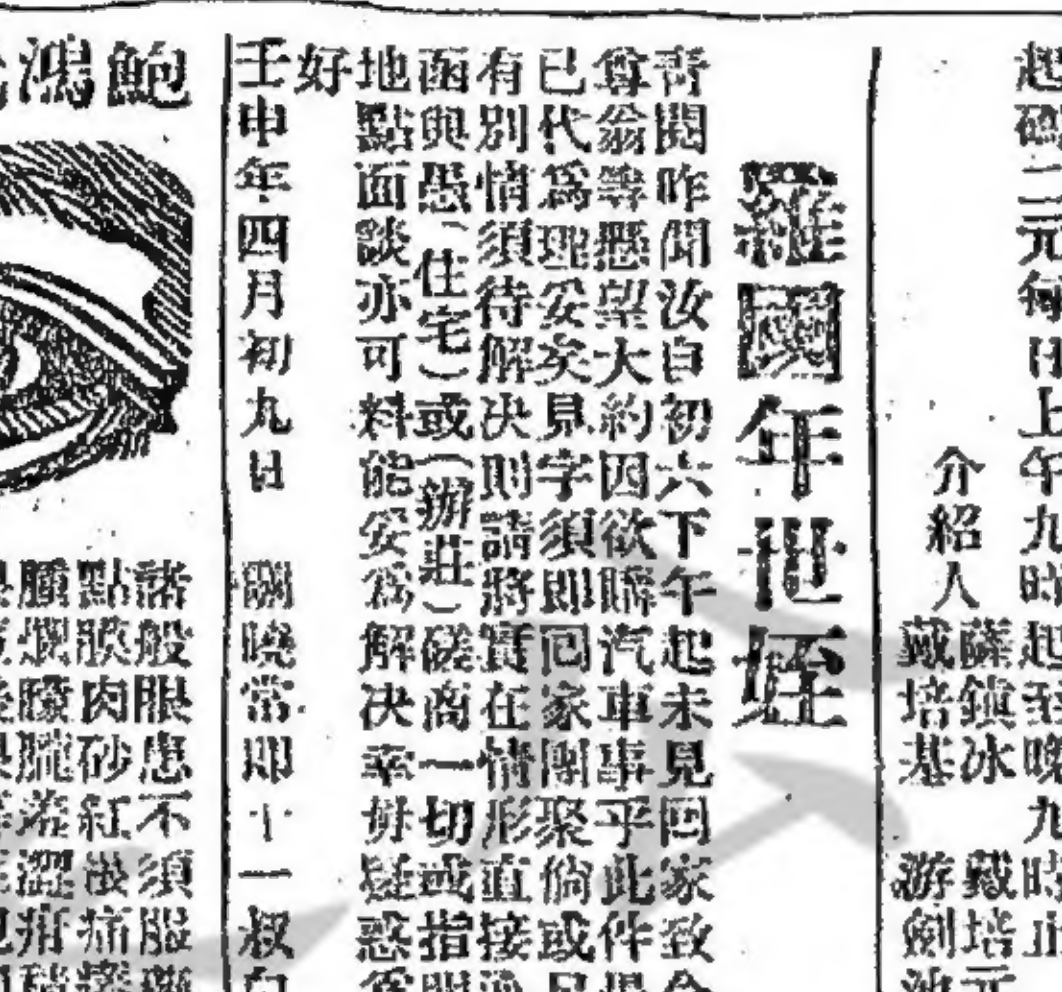 起碼二元每日上午九時起至晚九時止
介紹人
薩鎮冰 戴培元
戴培基 游劍池
羅國年世姪
青閱昨聞汝自初六下午起未見回家致令
尊翁等懸望大約因欲購汽車事乎此件
已代為理妥矣見字須即回家團聚倘或另
有別情須待解决則請將實在情形直接
函與愚(住宅)或(辦莊)磋商一切或指明
地點面談亦可料能妥為解决幸毋疑惑為
好
壬申年四月初九日 關曉當即十一叔白
鮑鴻
諸般眼患不須服
點膜肉砂紅 痛
腫爛矇朧